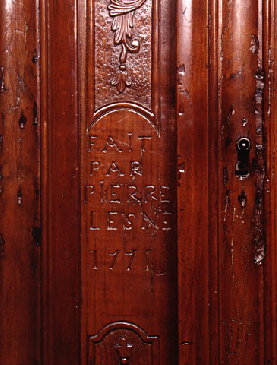 FAIT
PAR
PIERRE
LESNE
1771